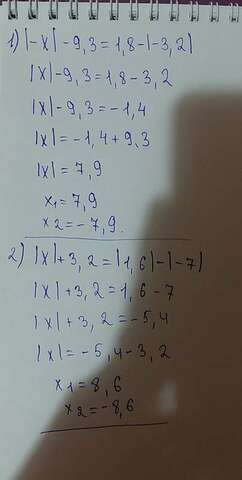 1) |-x| -9,3=1,8-|-3,2|
|x|-9,3=1,8-3,2
|x|-9,3=-1,4
|x|=-1,4+9,3
|x|=7,9
x1=7,9
x2=-7,9.
2) |x|+3,2=|1,6|-|-7|
|x|+3,2=1,6-7
|x|+3,2=-5,4
|x|=-5,4-3,2
x1=8,6
x2=-8,6